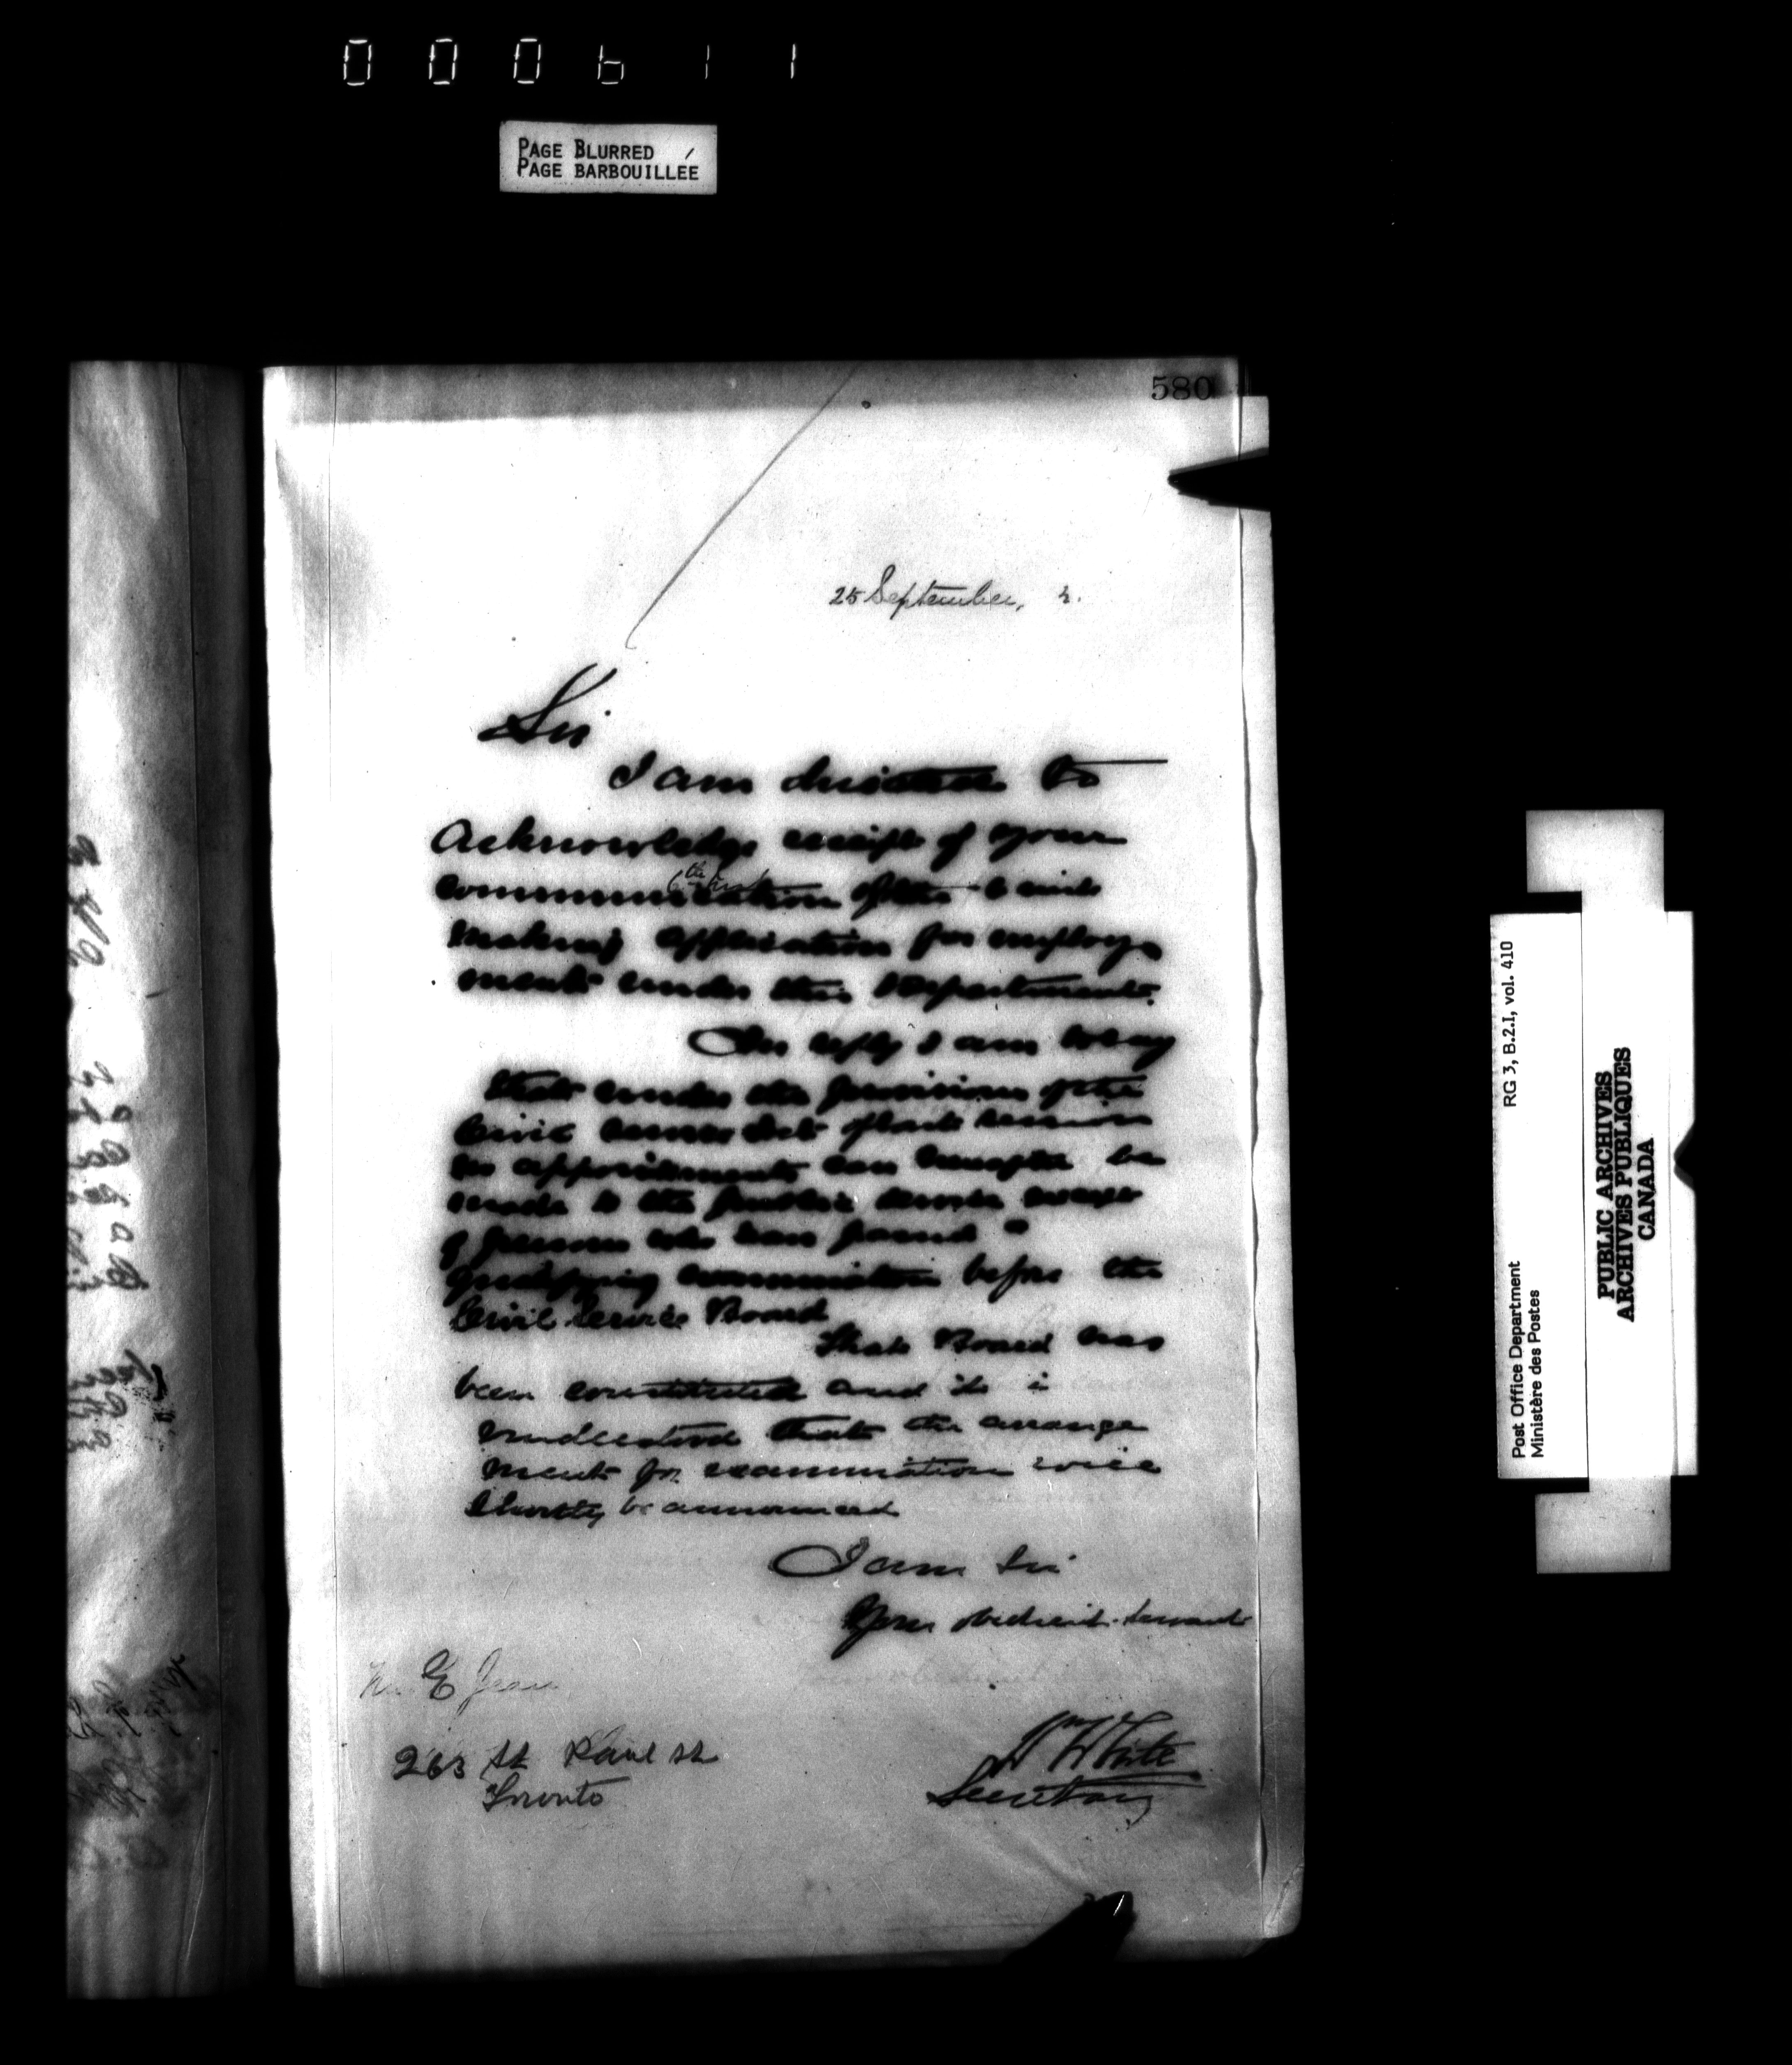 000611
PAGE BLURRED
PAGE BARBOUILLÉE
580
25 September, 2.
Sir
I am directed to
acknowledge receipt of your
communication of the 6th inst
making application for employ-
ment under this Department.
In reply I am to say
that under the provisions of the
Civil Service Act of last session
no appointments can hereafter be
made to the public service except
of persons who have passed a
qualifying examination before the
Civil Service Board
That Board has
been constituted and it is
understood that the arrange
ment for examination will
shortly be announced
I am Sir
Your obedient servant
E Jean
263 St Paul St
Toronto
Wm White
Secretary
RG 3, B.2.I, vol. 410
Post Office Department
Ministère des Postes
PUBLIC ARCHIVES
ARCHIVES PUBLIQUES
CANADA